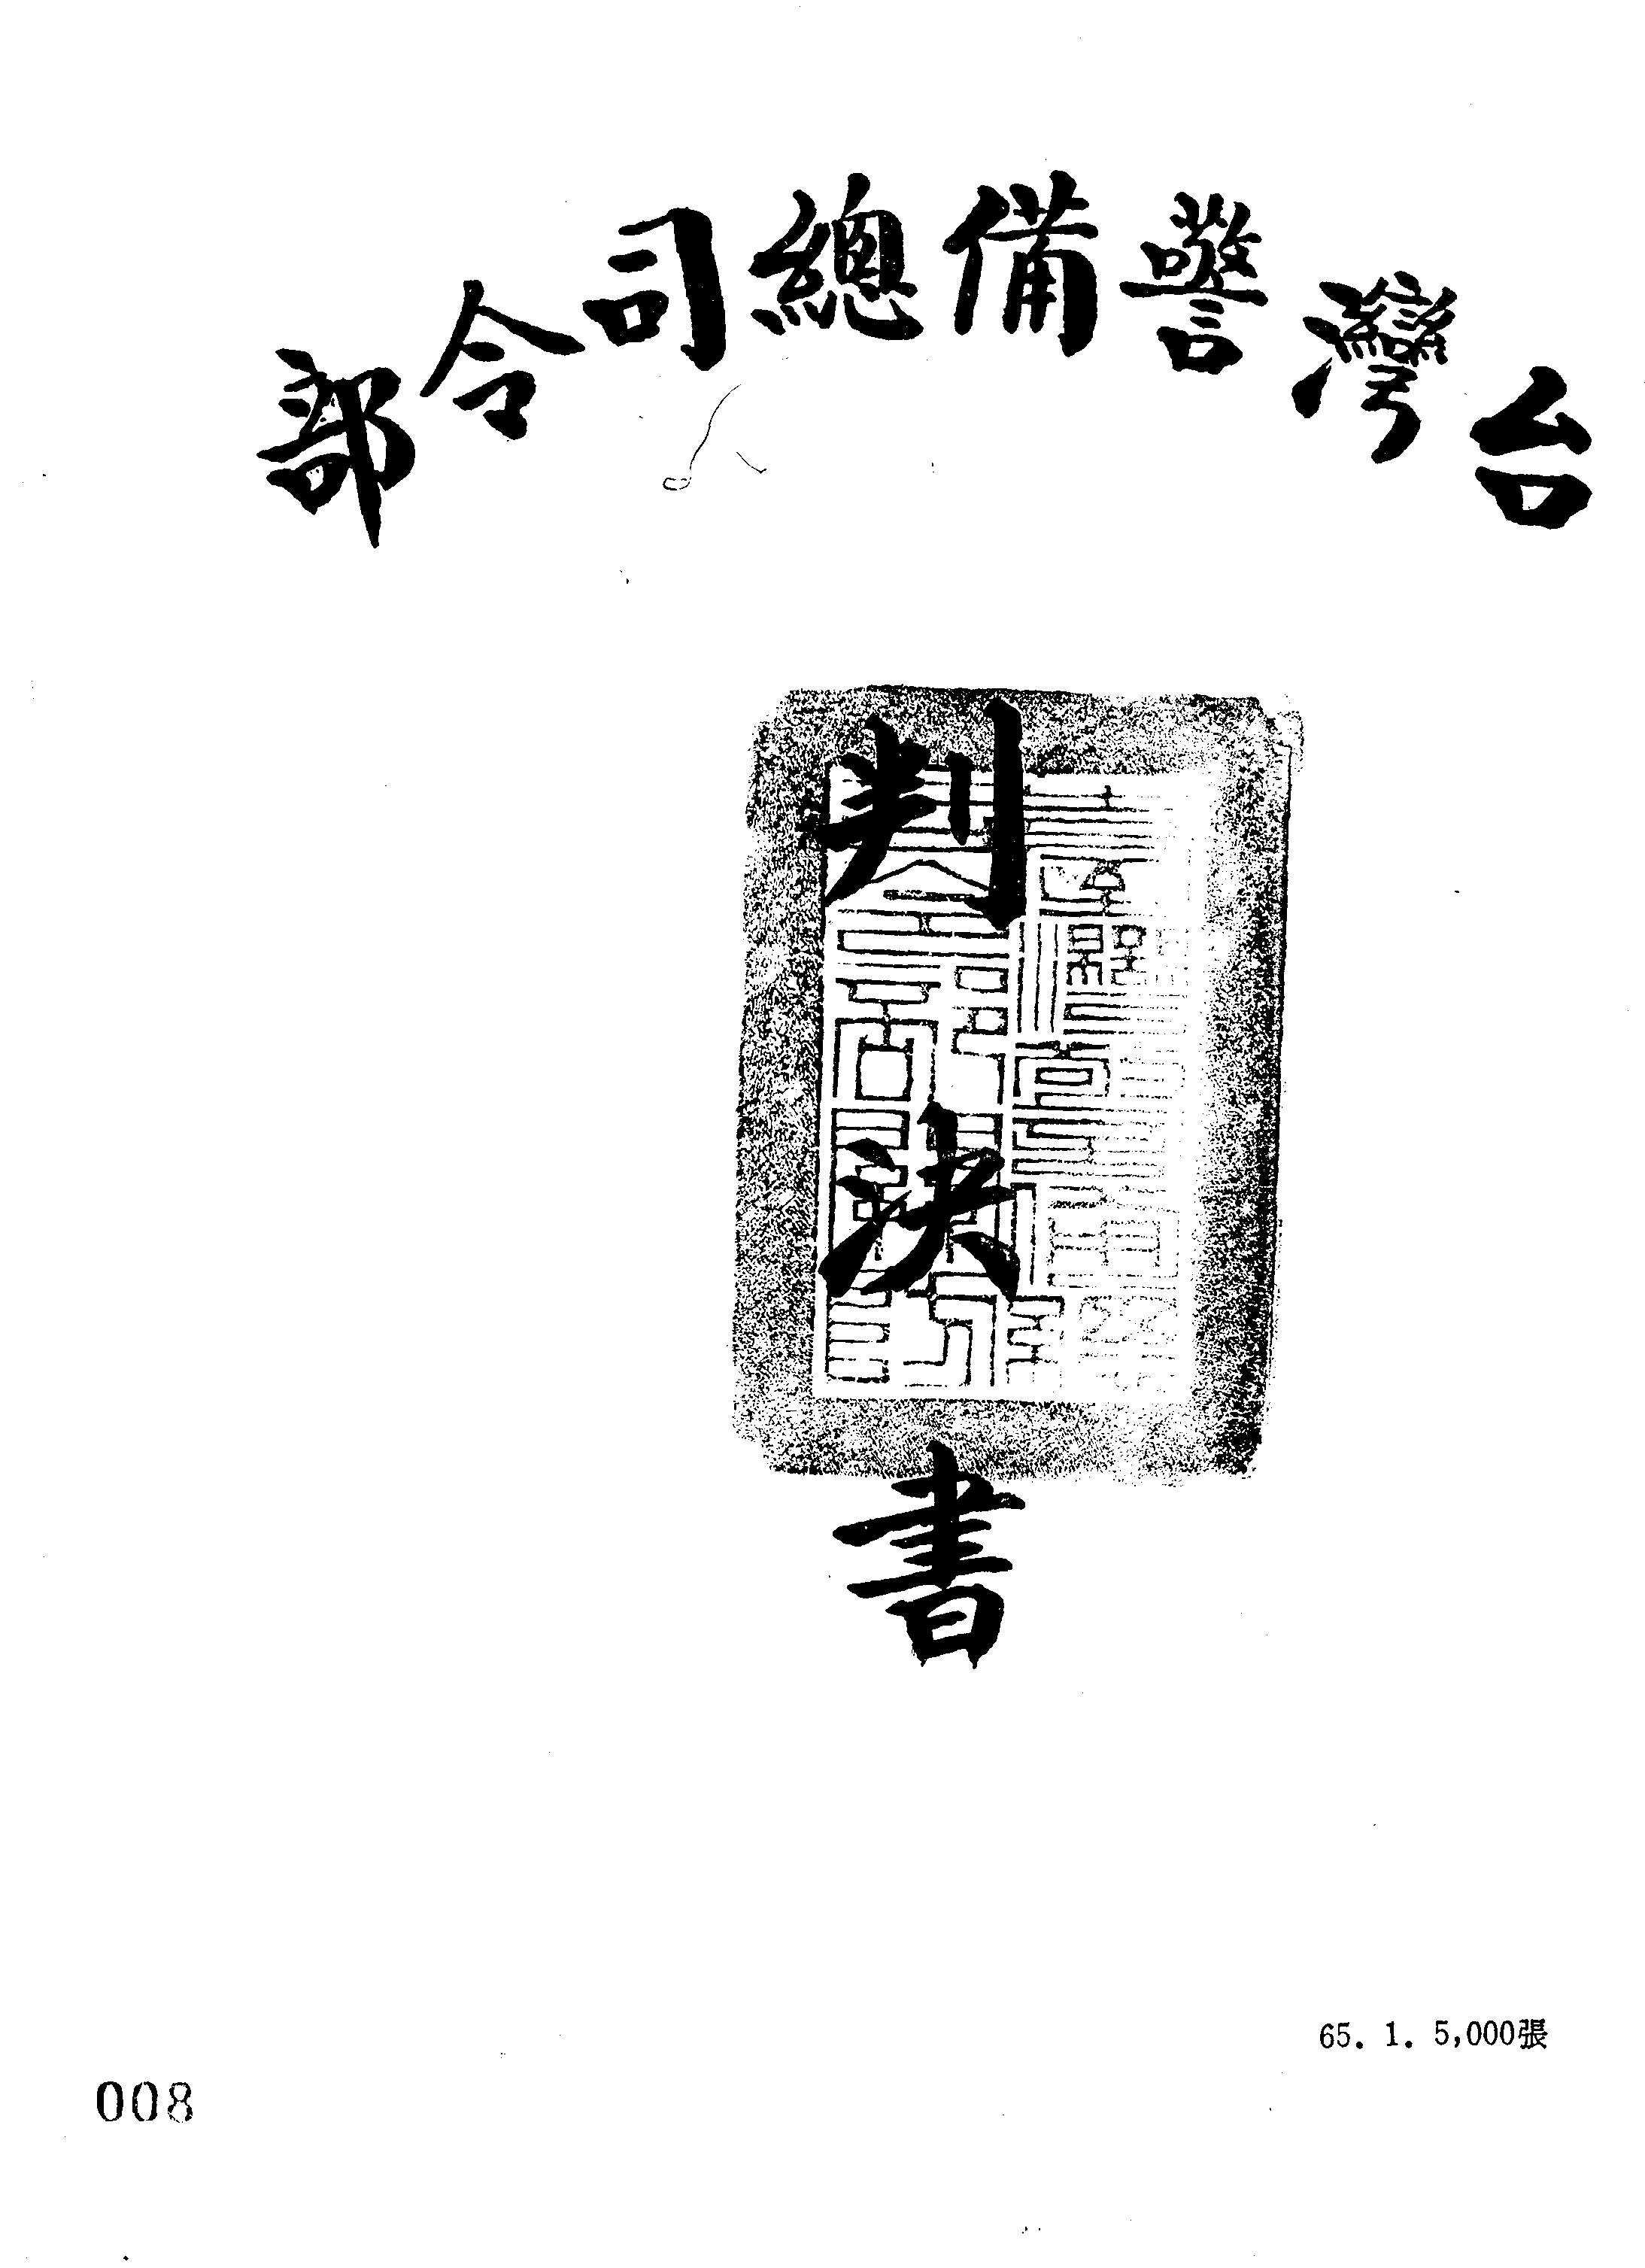 台灣警備總司令部
判決書
65. 1. 5,000張
008